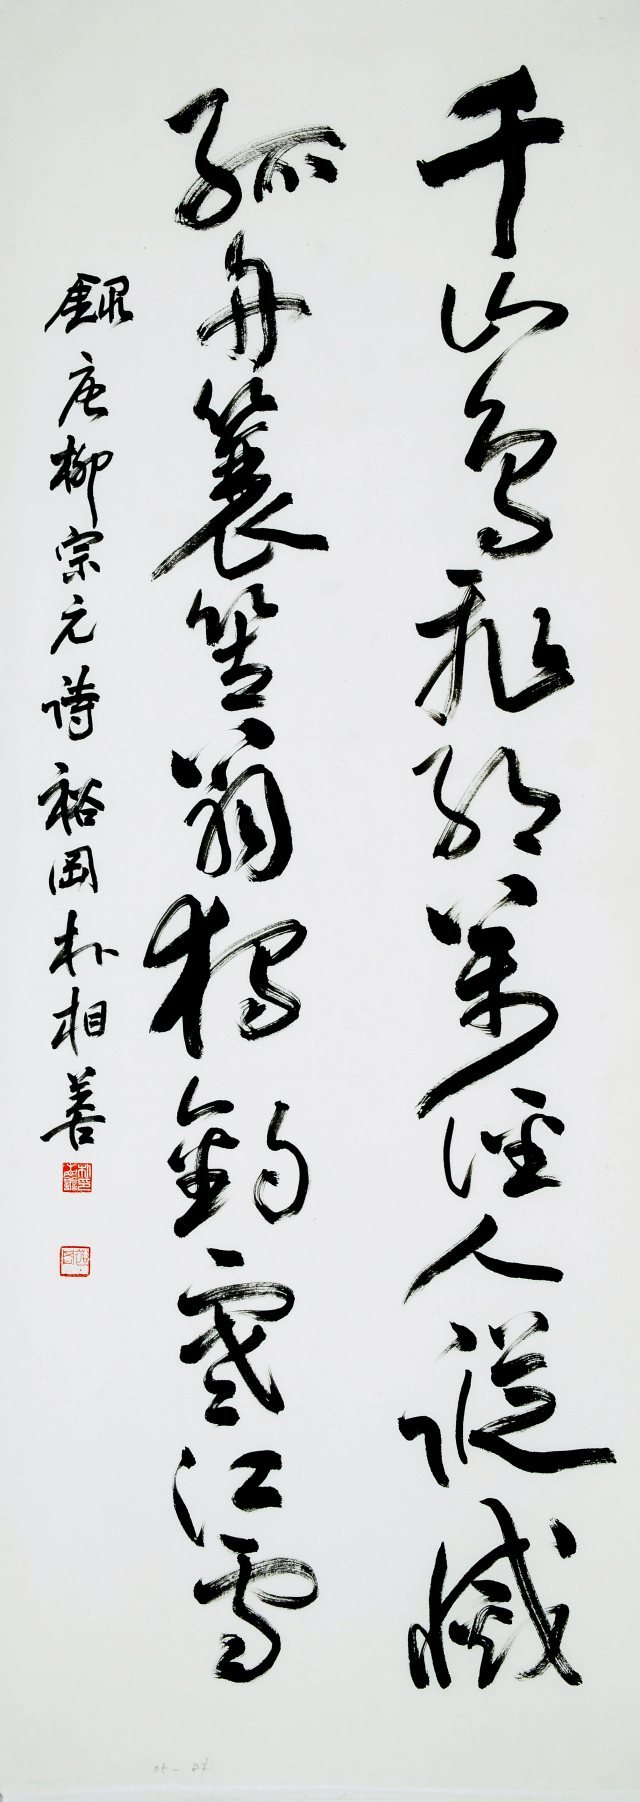 千山鳥飛絶萬徑人蹤滅
孤舟簑笠翁獨釣寒江雪
錄唐柳宗元詩 裕岡朴相善